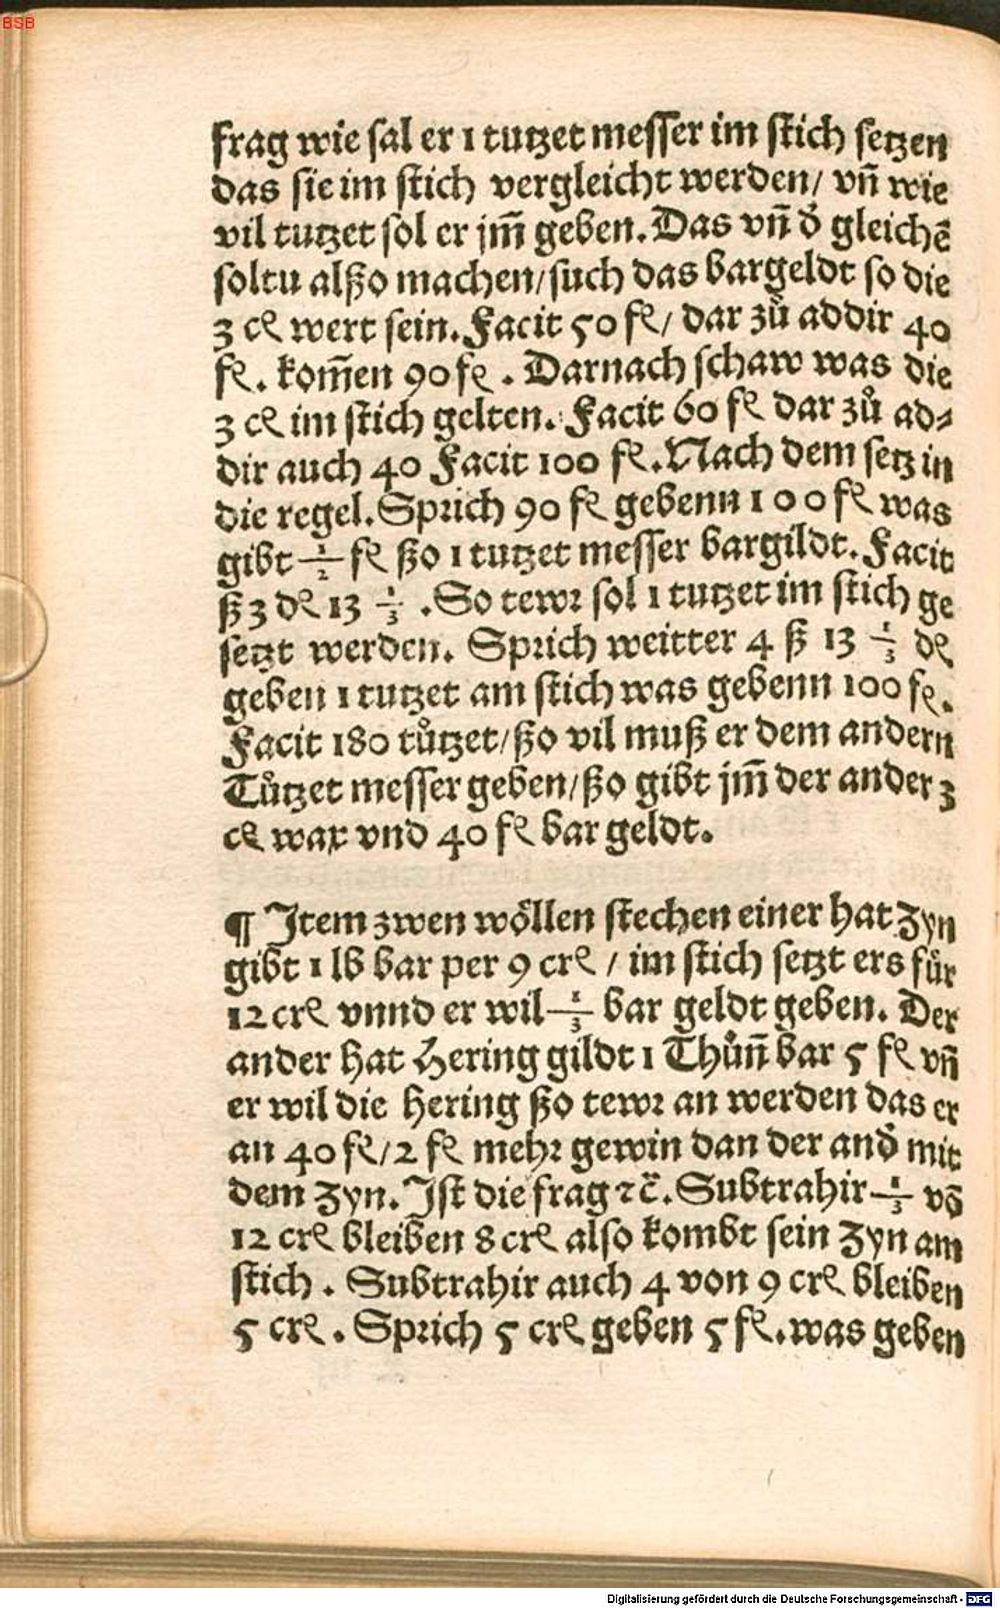 BSB
frag wie sal er 1 tutzet messer im stich setzen
das sie im stich vergleicht werden/ vñ wie
vil tutzet sol er jm̃ geben. Das vñ d̕ gleichẽ
soltu alßo machen/such das bargeldt so die
3 cƖ wert sein. Facit 50 fƖ/ dar zů addir 40
fƖ. kom̃en 90 fƖ. Darnach schaw was die
3 cƖ im stich gelten. Facit 60 fƖ dar zů ad⸗
dir auch 40 Facit 100 fƖ. Nach dem setz in
die regel. Sprich 90 fƖ gebenn 100 fƖ was
gibt 1/2 fƖ ßo 1 tutzet messer bargildt. Facit
ß 3 dƖ 13 1/3 . So tewꝛ sol 1 tutzet im stich ge
setzt werden. Sprich weitter 4 ß 13 1/3 dƖ
geben 1 tutzet am stich was gebenn 100 fƖ.
Facit 180 tůtzet/ßo vil muß er dem andern
Tůtzet messer geben/ßo gibt jm̃ der ander 3
cƖ wax vnd 40 fƖ bar geldt.
¶ Item zwen wöllen stechen einer hat Zyn
gibt 1 lb bar per 9 crƖ / im stich setzt ers für
12 crƖ vnnd er wil 1/3 bar geldt geben. Der
ander hat Hering gildt 1 Thůñ bar 5 fƖ vñ
er wil die hering ßo tewꝛ an werden das er
an 40 fƖ/2 fƖ mehꝛ gewin dan der and̕ mit
dem Zyn. Ist die frag ⁊c̃. Subtrahir 1/3 võ
12 crƖ bleiben 8 crƖ also kombt sein Zyn am
stich . Subtrahir auch 4 von 9 crƖ bleiben
5 crƖ . Sprich 5 crƖ geben 5 fƖ. was geben
Digitalisierung gefördert durch die Deutsche Forschungsgemeinschaft - DFG